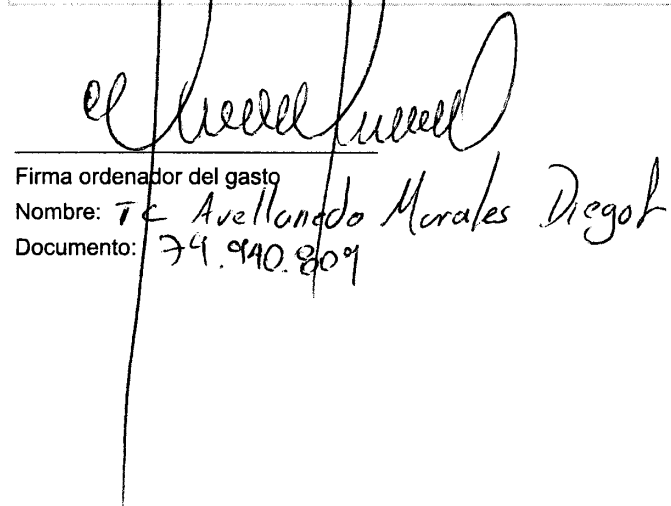 Firma ordenador del gasto
Nombre: TC Avellanedo Morales Diego
Documento: 79.940.809